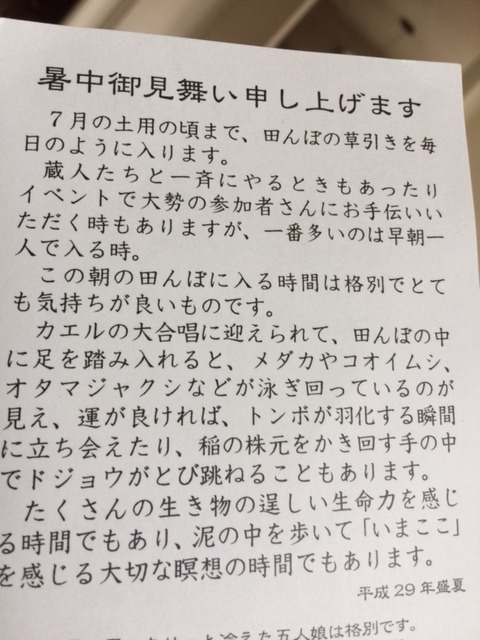 暑中御見舞い申し上げます
７月の土用の頃まで、田んぼの草引きを毎
日のように入ります。
蔵人たちと一斉にやるときもあったり
イベントで大勢の参加者さんにお手伝いい
ただく時もありますが、一番多いのは早朝一
人で入る時。
この朝の田んぼに入る時間は格別でとて
も気持ちが良いものです。
カエルの大合唱に迎えられて、田んぼの中
に足を踏み入れると、メダカやコオイムシ、
オタマジャクシなどが泳ぎ回っているのが
見え、運が良ければ、トンボが羽化する瞬間
に立ち会えたり、稲の株元をかき回す手の中
でドジョウがとび跳ねることもあります。
たくさんの生き物の逞しい生命力を感じ
る時間でもあり、泥の中を歩いて「いまここ」
を感じる大切な瞑想の時間でもあります。
平成２９年盛夏
と冷えた五人娘は格別です。